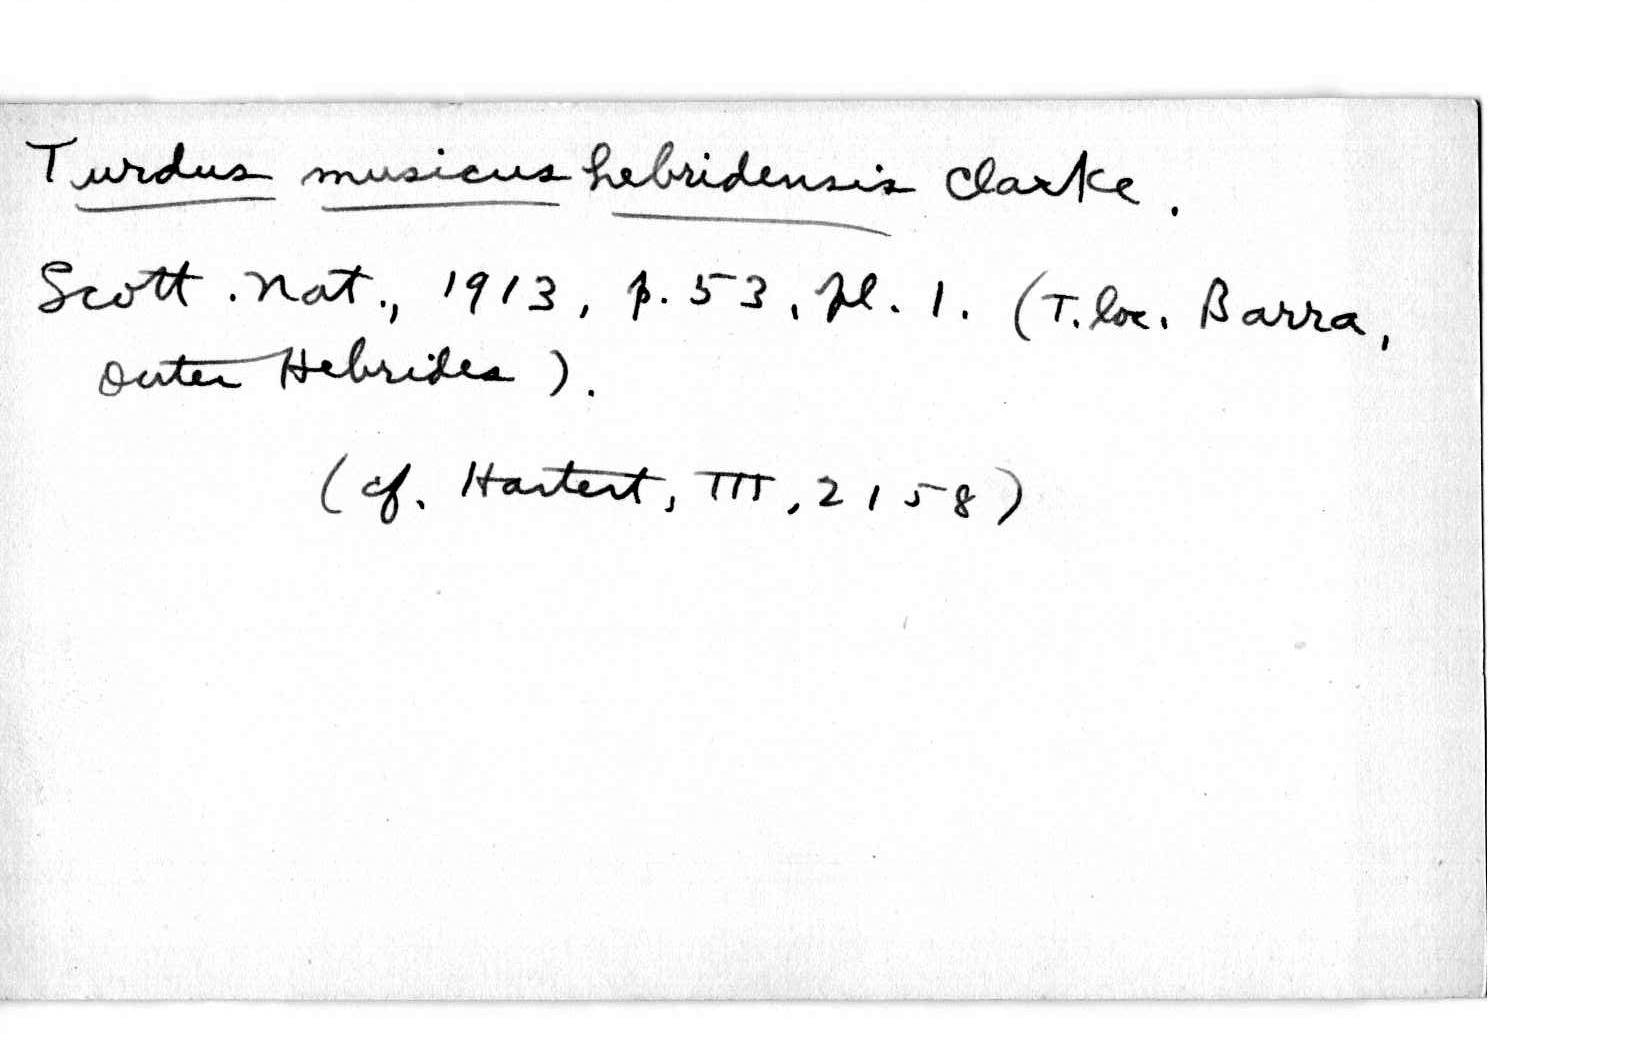 Turdus musicus hebridensis Clarke.
Scott. Nat., 1913, p. 53, pl. 1. (T. loc. Barra,
Outer Hebrides).
(cf. Hartert, III, 2158)